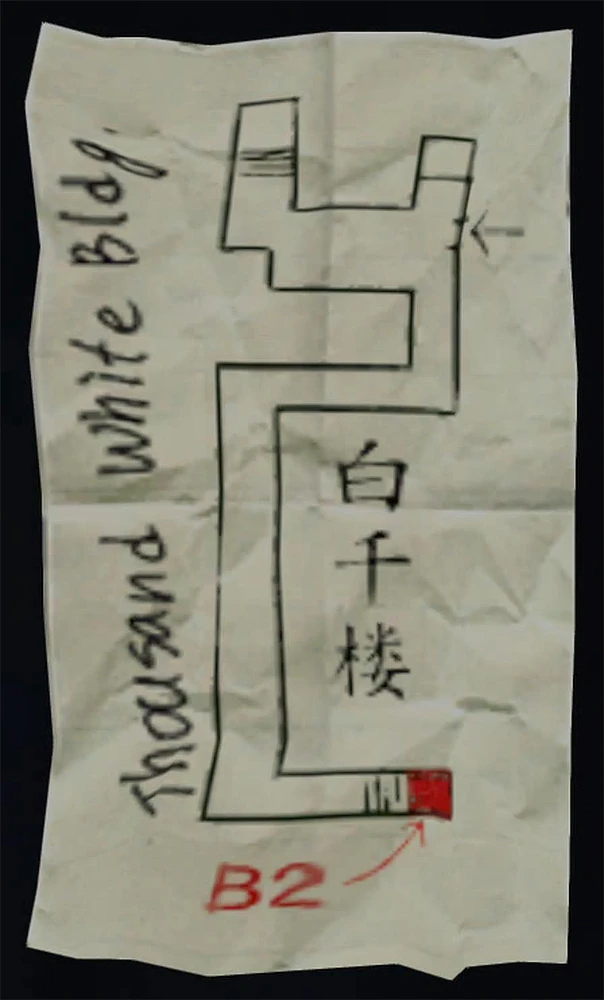 Thousand White Bldg.
白千楼
B2